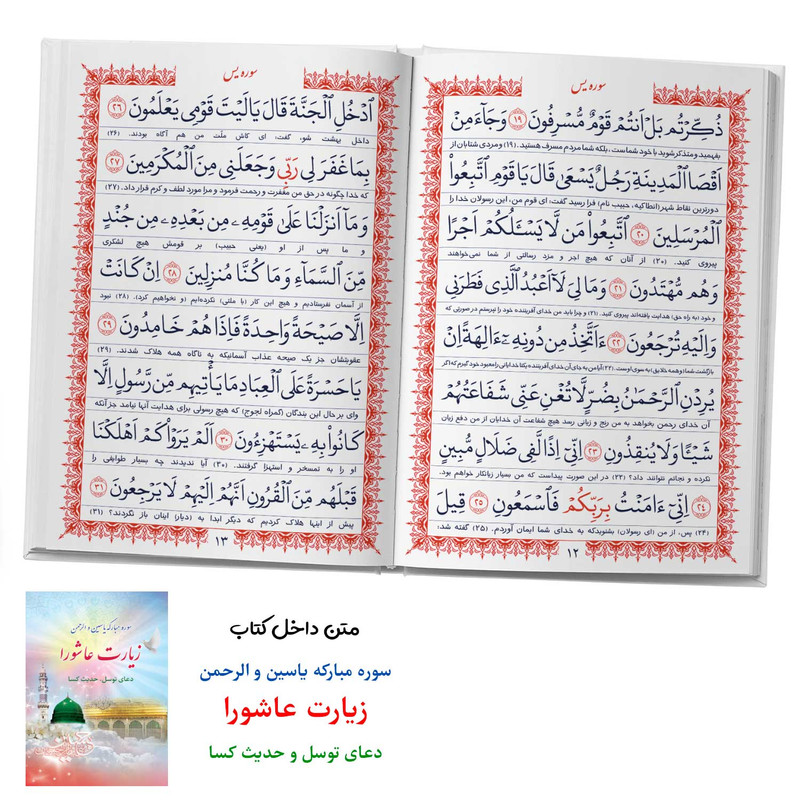 سوره یس
ذُكِّرْتُم بَلْ أَنتُمْ قَوْمٌ مُّسْرِفُونَ ﴿۱۹﴾ وَجَآءَ مِنْ
بفهمید و متذکر شوید با خود شماست، بلکه شما مردم مسرف هستید. (۱۹) و مردی شتابان از
أَقْصَا الْمَدِينَةِ رَجُلٌ يَسْعَىٰ قَالَ يَا قَوْمِ اتَّبِعُوا
دورترین نقاط شهر (انطاکیه، حبیب نام) فرا رسید گفت، ای قوم من، این رسولان خدا را
الْمُرْسَلِينَ ﴿۲۰﴾ اتَّبِعُوا مَن لَّا يَسْئَلُكُمْ أَجْرًا
پیروی کنید. (۲۰) از آنان که هیچ اجر و مزد رسالتی از شما نمی‌خواهند
وَهُم مُّهْتَدُونَ ﴿۲۱﴾ وَمَا لِيَ لَا أَعْبُدُ الَّذِي فَطَرَنِي
و خود (به راه حق) هدایت یافته‌اند پیروی کنید. (۲۱) و چرا باید من خدای آفریننده خود را نپرستم در صورتی که
وَإِلَيْهِ تُرْجَعُونَ ﴿۲۲﴾ ءَأَتَّخِذُ مِن دُونِهِ ءَالِهَةً إِنْ
بازگشت شما و همه خلایق به سوی اوست. (۲۲) آیا من به جای آن خدای آفریننده یکتا خدایانی را معبود خود گیرم که اگر
يُرِدْنِ الرَّحْمَٰنُ بِضُرٍّ لَّا تُغْنِ عَنِّي شَفَاعَتُهُمْ
آن خدای رحمن بخواهد به من رنج و زیانی رسد هیچ شفاعت آن خدایان از من دفع زیان
شَيْئًا وَلَا يُنقِذُونِ ﴿۲۳﴾ إِنِّي إِذًا لَّفِي ضَلَالٍ مُّبِينٍ
نکرده و نجاتم نتوانند داد؟ (۲۳) در این صورت پیداست که من بسیار زیانکار خواهم بود.
﴿۲۴﴾ إِنِّي ءَامَنتُ بِرَبِّكُمْ فَاسْمَعُونِ ﴿۲۵﴾ قِيلَ
(۲۴) پس، از من (ای رسولان) بشنوید که به خدای شما ایمان آوردم. (۲۵) گفته شد:
۱۲
سوره یس
ادْخُلِ الْجَنَّةَ قَالَ يَا لَيْتَ قَوْمِي يَعْلَمُونَ ﴿۲۶﴾
داخل بهشت شو، گفت، ای کاش ملت من هم آگاه بودند. (۲۶)
بِمَا غَفَرَ لِي رَبِّي وَجَعَلَنِي مِنَ الْمُكْرَمِينَ ﴿۲۷﴾
که خدا چگونه در حق من مغفرت و رحمت فرمود و مرا مورد لطف و کرم قرار داد. (۲۷)
وَمَا أَنزَلْنَا عَلَىٰ قَوْمِهِ مِن بَعْدِهِ مِن جُندٍ
و ما پس از او (یعنی حبیب) بر قومش هیچ لشکری
مِّنَ السَّمَآءِ وَمَا كُنَّا مُنزِلِينَ ﴿۲۸﴾ إِن كَانَتْ
از آسمان نفرستادیم و هیچ این کار (با ملتی) نکرده‌ایم (و نخواهیم کرد). (۲۸) نبود
إِلَّا صَيْحَةً وَاحِدَةً فَإِذَا هُمْ خَامِدُونَ ﴿۲۹﴾
عقوبتشان جز یک صیحه عذاب آسمانیکه به ناگاه همه هلاک شدند. (۲۹)
يَا حَسْرَةً عَلَى الْعِبَادِ مَا يَأْتِيهِم مِّن رَّسُولٍ إِلَّا
وای بر حال این بندگان (گمراه لجوج) که هیچ رسولی برای هدایت آنها نیامد جز آنکه
كَانُوا بِهِ يَسْتَهْزِءُونَ ﴿۳۰﴾ أَلَمْ يَرَوْا كَمْ أَهْلَكْنَا
او را به تمسخر و استهزا گرفتند. (۳۰) آیا ندیدند چه بسیار طوایفی را
قَبْلَهُم مِّنَ الْقُرُونِ أَنَّهُمْ إِلَيْهِمْ لَا يَرْجِعُونَ ﴿۳۱﴾
پیش از اینها هلاک کردیم که دیگر ابدا به (دیار) اینان باز نگردند؟ (۳۱)
۱۳
سوره مبارکه یاسین و الرحمن
زیارت عاشورا
دعای توسل، حدیث کسا
متن داخل کتاب
سوره مبارکه یاسین و الرحمن
زیارت عاشورا
دعای توسل و حدیث کسا